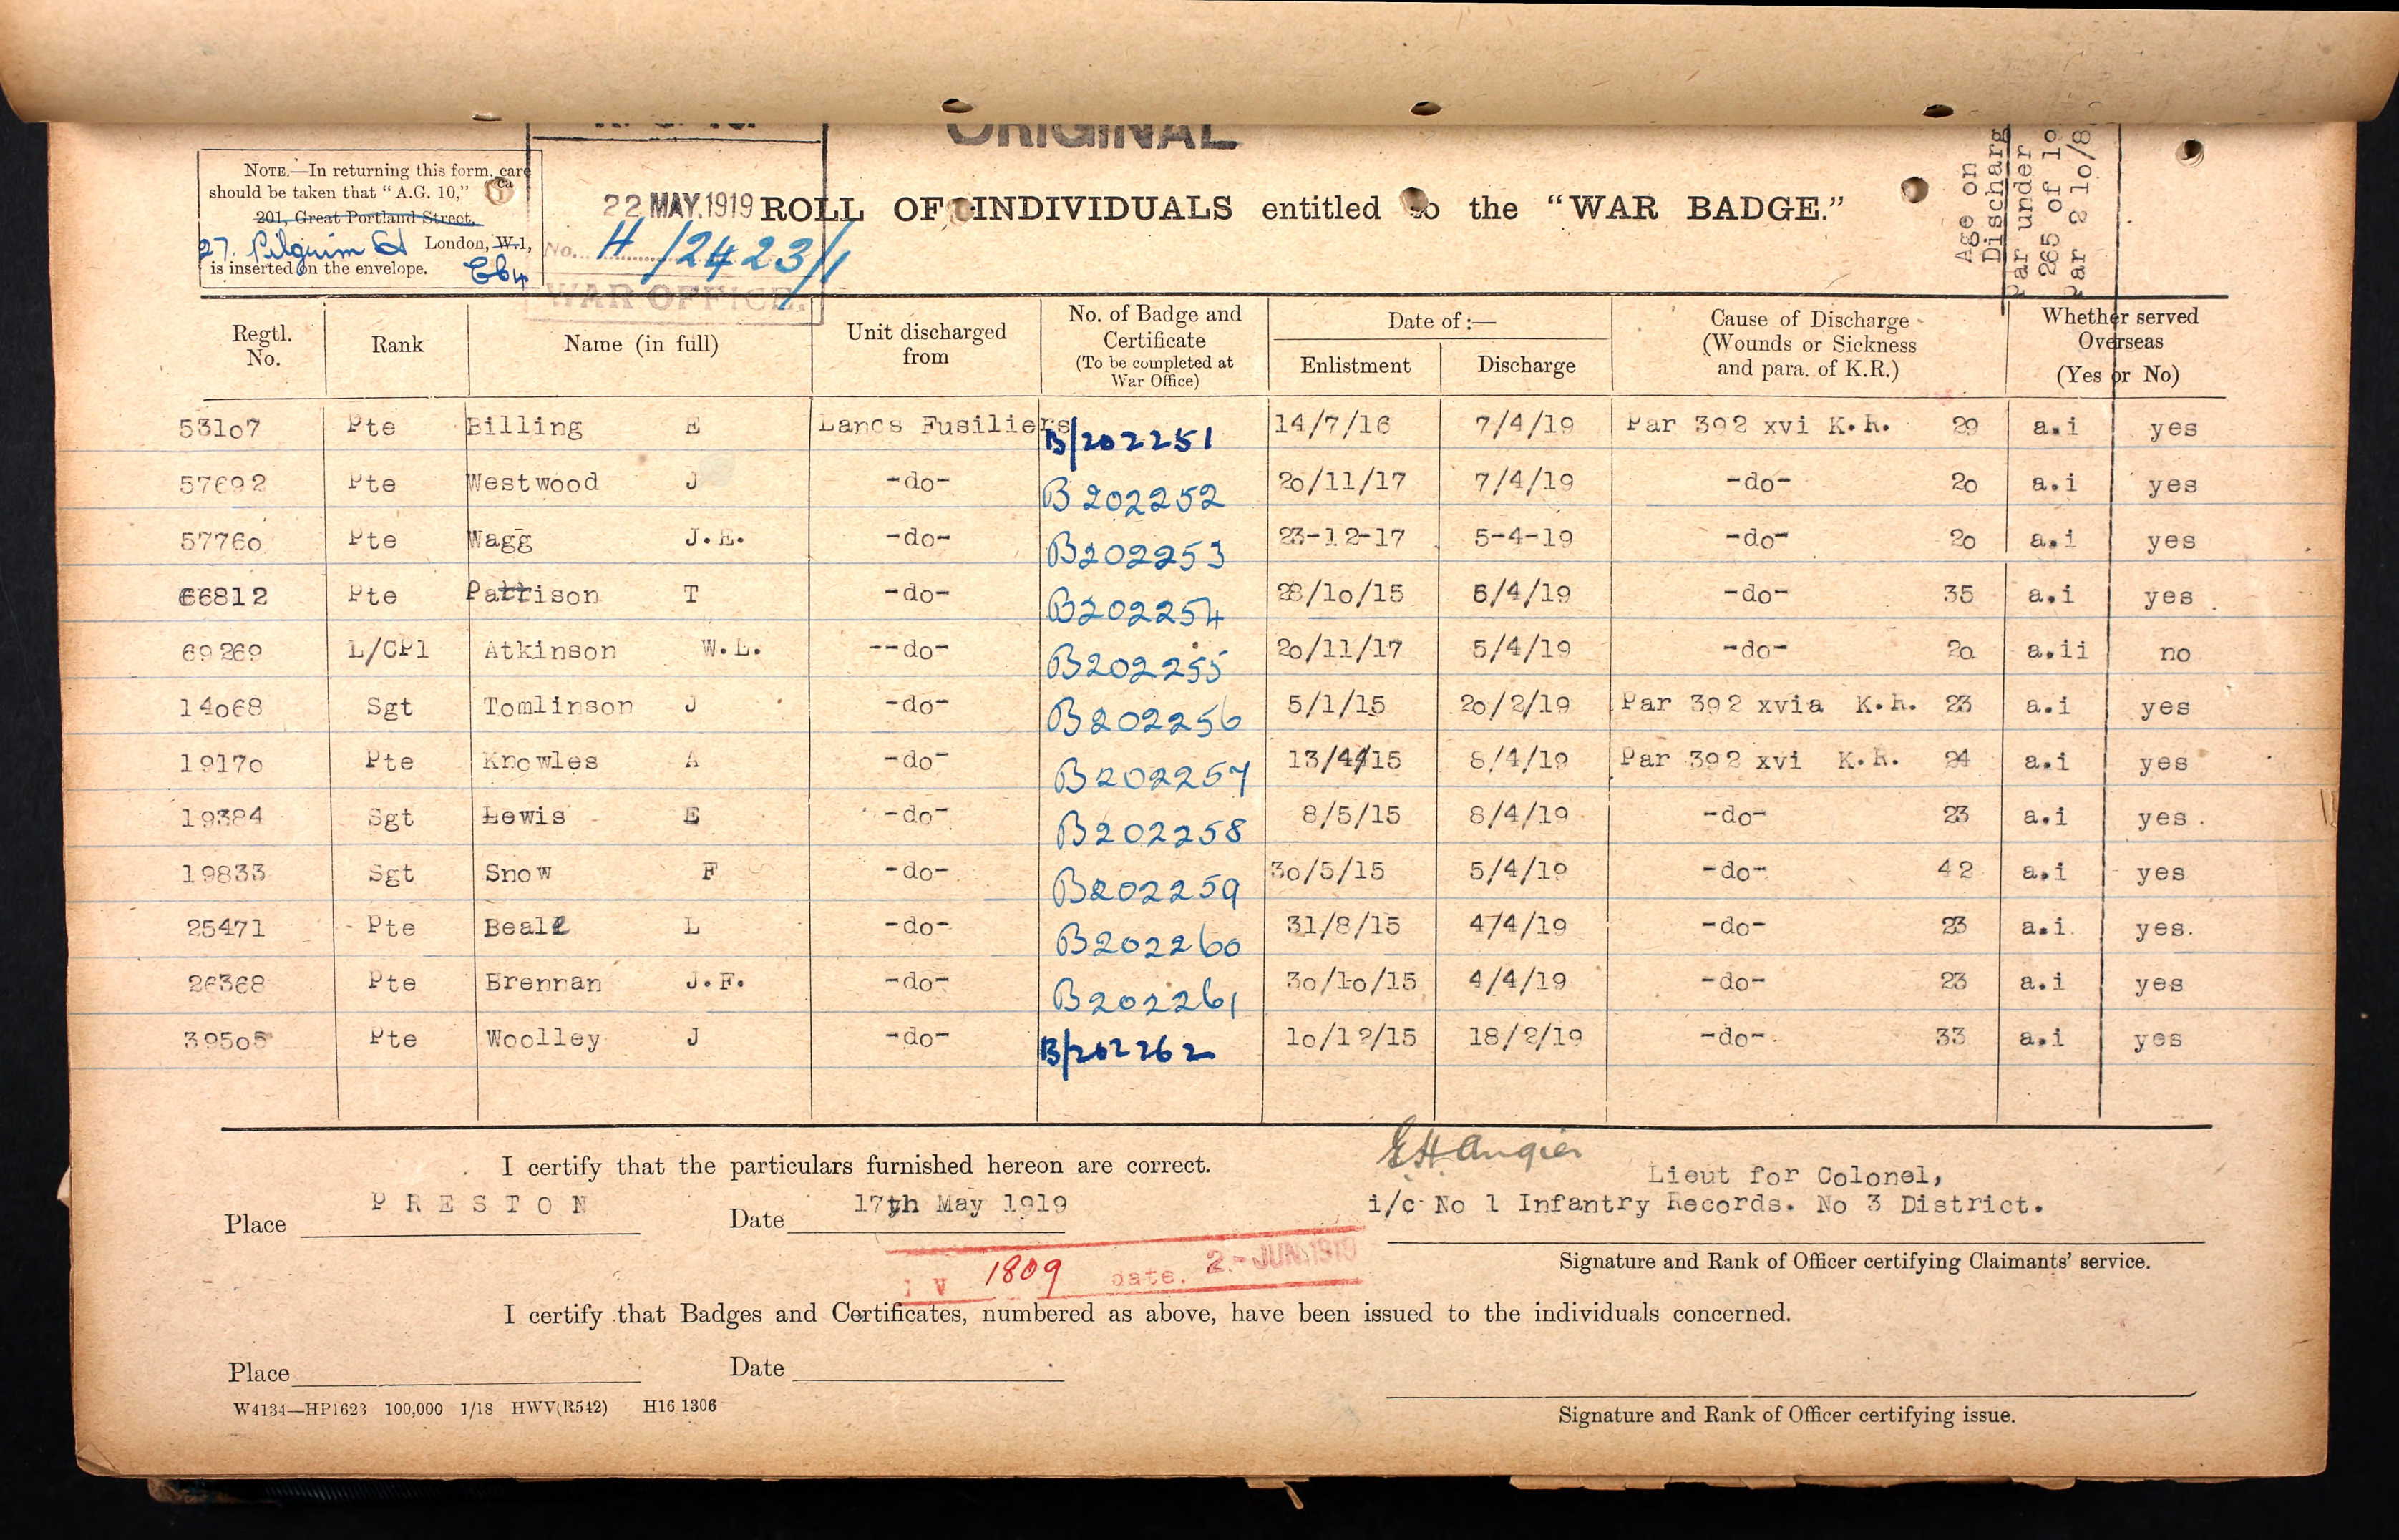 ORIGINAL
NOTE.—In returning this form, care
should be taken that "A.G. 10,"
201, Great Portland Street,
27. Pilgrim St London, W.1,
is inserted on the envelope. EC4
22 MAY.1919
No. H/2423/1
WAR OFFICE.
ROLL OF INDIVIDUALS entitled to the "WAR BADGE."
Age on
Discharg
Par under
265 of 19
Par 2 10/8
Regtl. No. Rank Name (in full) Unit discharged from No. of Badge and Certificate (To be completed at War Office) Date of:— Enlistment Discharge Cause of Discharge (Wounds or Sickness and para. of K.R.) Whether served Overseas (Yes or No)
53107 Pte Billing E Lancs Fusiliers B/202251 14/7/16 7/4/19 Par 392 xvi K.R. 29 a.i yes
57692 Pte Westwood J -do- B202252 20/11/17 7/4/19 -do- 20 a.i yes
57760 Pte Wagg J.E. -do- B202253 23-12-17 5-4-19 -do- 20 a.i yes
66812 Pte Pattison T -do- B202254 28/10/15 6/4/19 -do- 35 a.i yes
69269 L/CPl Atkinson W.L. --do- B202255 20/11/17 5/4/19 -do- 20 a.ii no
14068 Sgt Tomlinson J -do- B202256 5/1/15 20/2/19 Par 392 xvia K.R. 23 a.i yes
19170 Pte Knowles A -do- B202257 13/4/15 8/4/19 Par 392 xvi K.R. 24 a.i yes
19384 Sgt Lewis E -do- B202258 8/5/15 8/4/19 -do- 23 a.i yes.
19833 Sgt Snow F -do- B202259 30/5/15 5/4/19 -do- 42 a.i yes
25471 Pte Beale L -do- B202260 31/8/15 4/4/19 -do- 23 a.i. yes.
26368 Pte Brennan J.F. -do- B202261 30/10/15 4/4/19 -do- 23 a.i yes
39505 Pte Woolley J -do- B/202262 10/12/15 18/2/19 -do-. 33 a.i yes
I certify that the particulars furnished hereon are correct.
EH Angier
Lieut for Colonel,
Place PRESTON Date 17th May 1919 i/c No 1 Infantry Records. No 3 District.
Signature and Rank of Officer certifying Claimants' service.
V 1809 date. 2.-JUN.1919
I certify that Badges and Certificates, numbered as above, have been issued to the individuals concerned.
Place Date
W4134—HP1623 100,000 1/18 HWV(R542) H16 1306
Signature and Rank of Officer certifying issue.